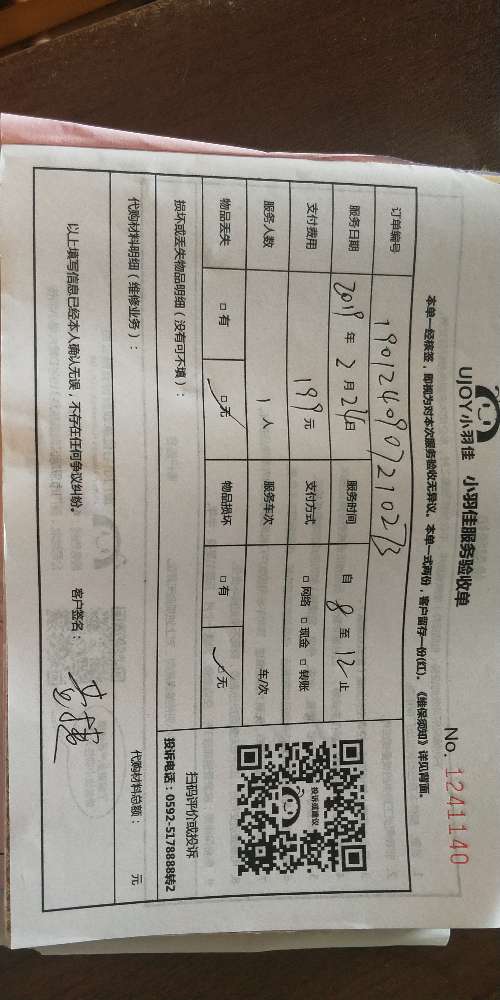 UJOY小羽佳 小羽佳服务验收单
No. 1241140
本单一经核签，即视为对本次服务验收无异议。本单一式两份，客户留存一份(红)。《维保须知》详见背面。
订单编号 1901240907210273
服务日期 2019 年 2 月 24 日 服务时间 自 8 至 12 止
支付费用 199 元 支付方式 □ 网络 □ 现金 □ 转账
服务人数 1 人 服务车次 车/次
物品丢失 □ 有 □ 无 物品损坏 □ 有 □ 无
投诉或建议
扫码评价或投诉
投诉电话：0592-5178888转2
损坏或丢失物品明细（没有可不填）：
代购材料明细（维修业务）： 代购材料总额： 元
以上填写信息已经本人确认无误，不存在任何争议纠纷。 客户签名：